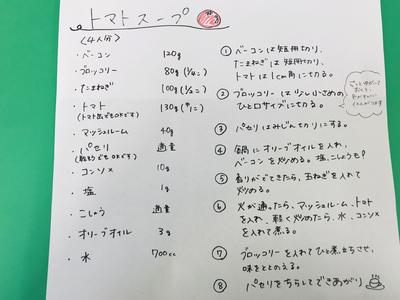 トマトスープ
〈4人分〉
・ベーコン 120g
・ブロッコリー 80g (1/4こ)
・たまねぎ 100g (1/2こ)
・トマト 130g
(トマト缶でもOKです)
・マッシュルーム 40g
・パセリ 適量
(乾そうでもOKです)
・コンソメ 10g
・塩 1g
・こしょう 適量
・オリーブオイル 3g
・水 700cc
① ベーコンは短冊切り、
たまねぎは短冊切り、
トマトは1cm角に切る。
② ブロッコリーは少し小さめの
ひと口サイズに切る。
③ パセリはみじん切りにする。
④ 鍋にオリーブオイルを入れ、
ベーコンを炒める。塩、こしょうも!
⑤ 香りがでてきたら、玉ねぎを入れて
炒める。
⑥ 火が通ったら、マッシュルーム、トマト
を入れ、軽く炒めたら、水、コンソメ
を入れて煮る。
⑦ ブロッコリーを入れてひと煮立ちさせ、
味をととのえる。
⑧ パセリをちらしてできあがり